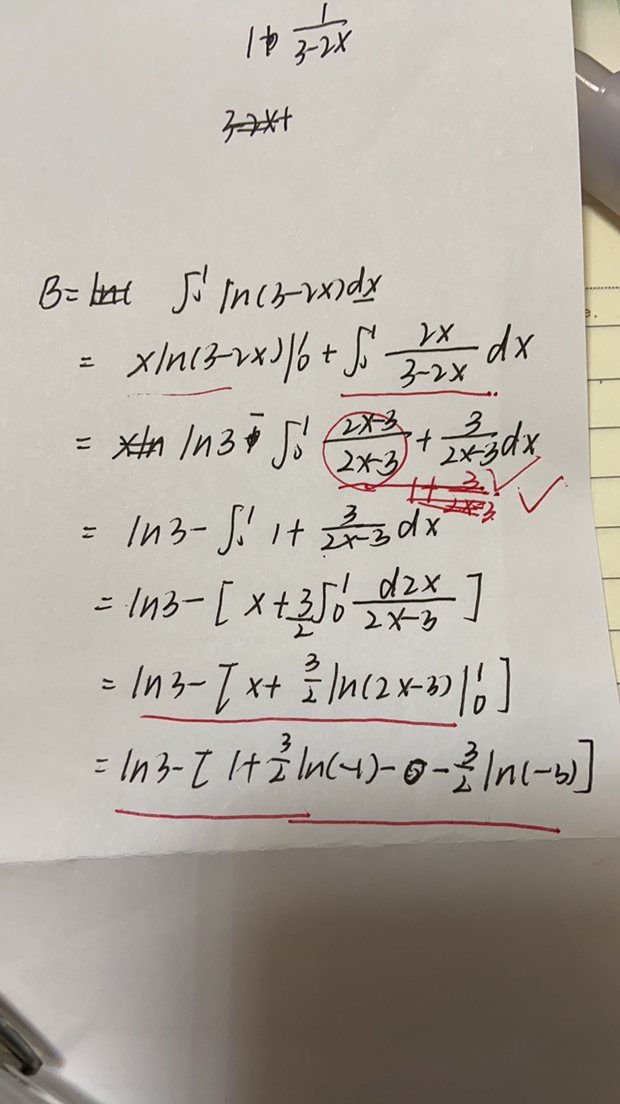 1+ 1/(3-2x)
3-2x+
B= ∫₀¹ ln(3-2x)dx
= xln(3-2x)|₀¹ + ∫₀¹ 2x/(3-2x) dx
= xln ln3 - ∫₀¹ (2x-3)/(2x-3) + 3/(2x-3) dx
1+ 3/(2x-3)
= ln3 - ∫₀¹ 1+ 3/(2x-3) dx
= ln3 - [ x + 3/2 ∫₀¹ d2x/(2x-3) ]
= ln3 - [ x + 3/2 ln(2x-3)|₀¹ ]
= ln3 - [ 1 + 3/2 ln(-1) - 0 - 3/2 ln(-3) ]